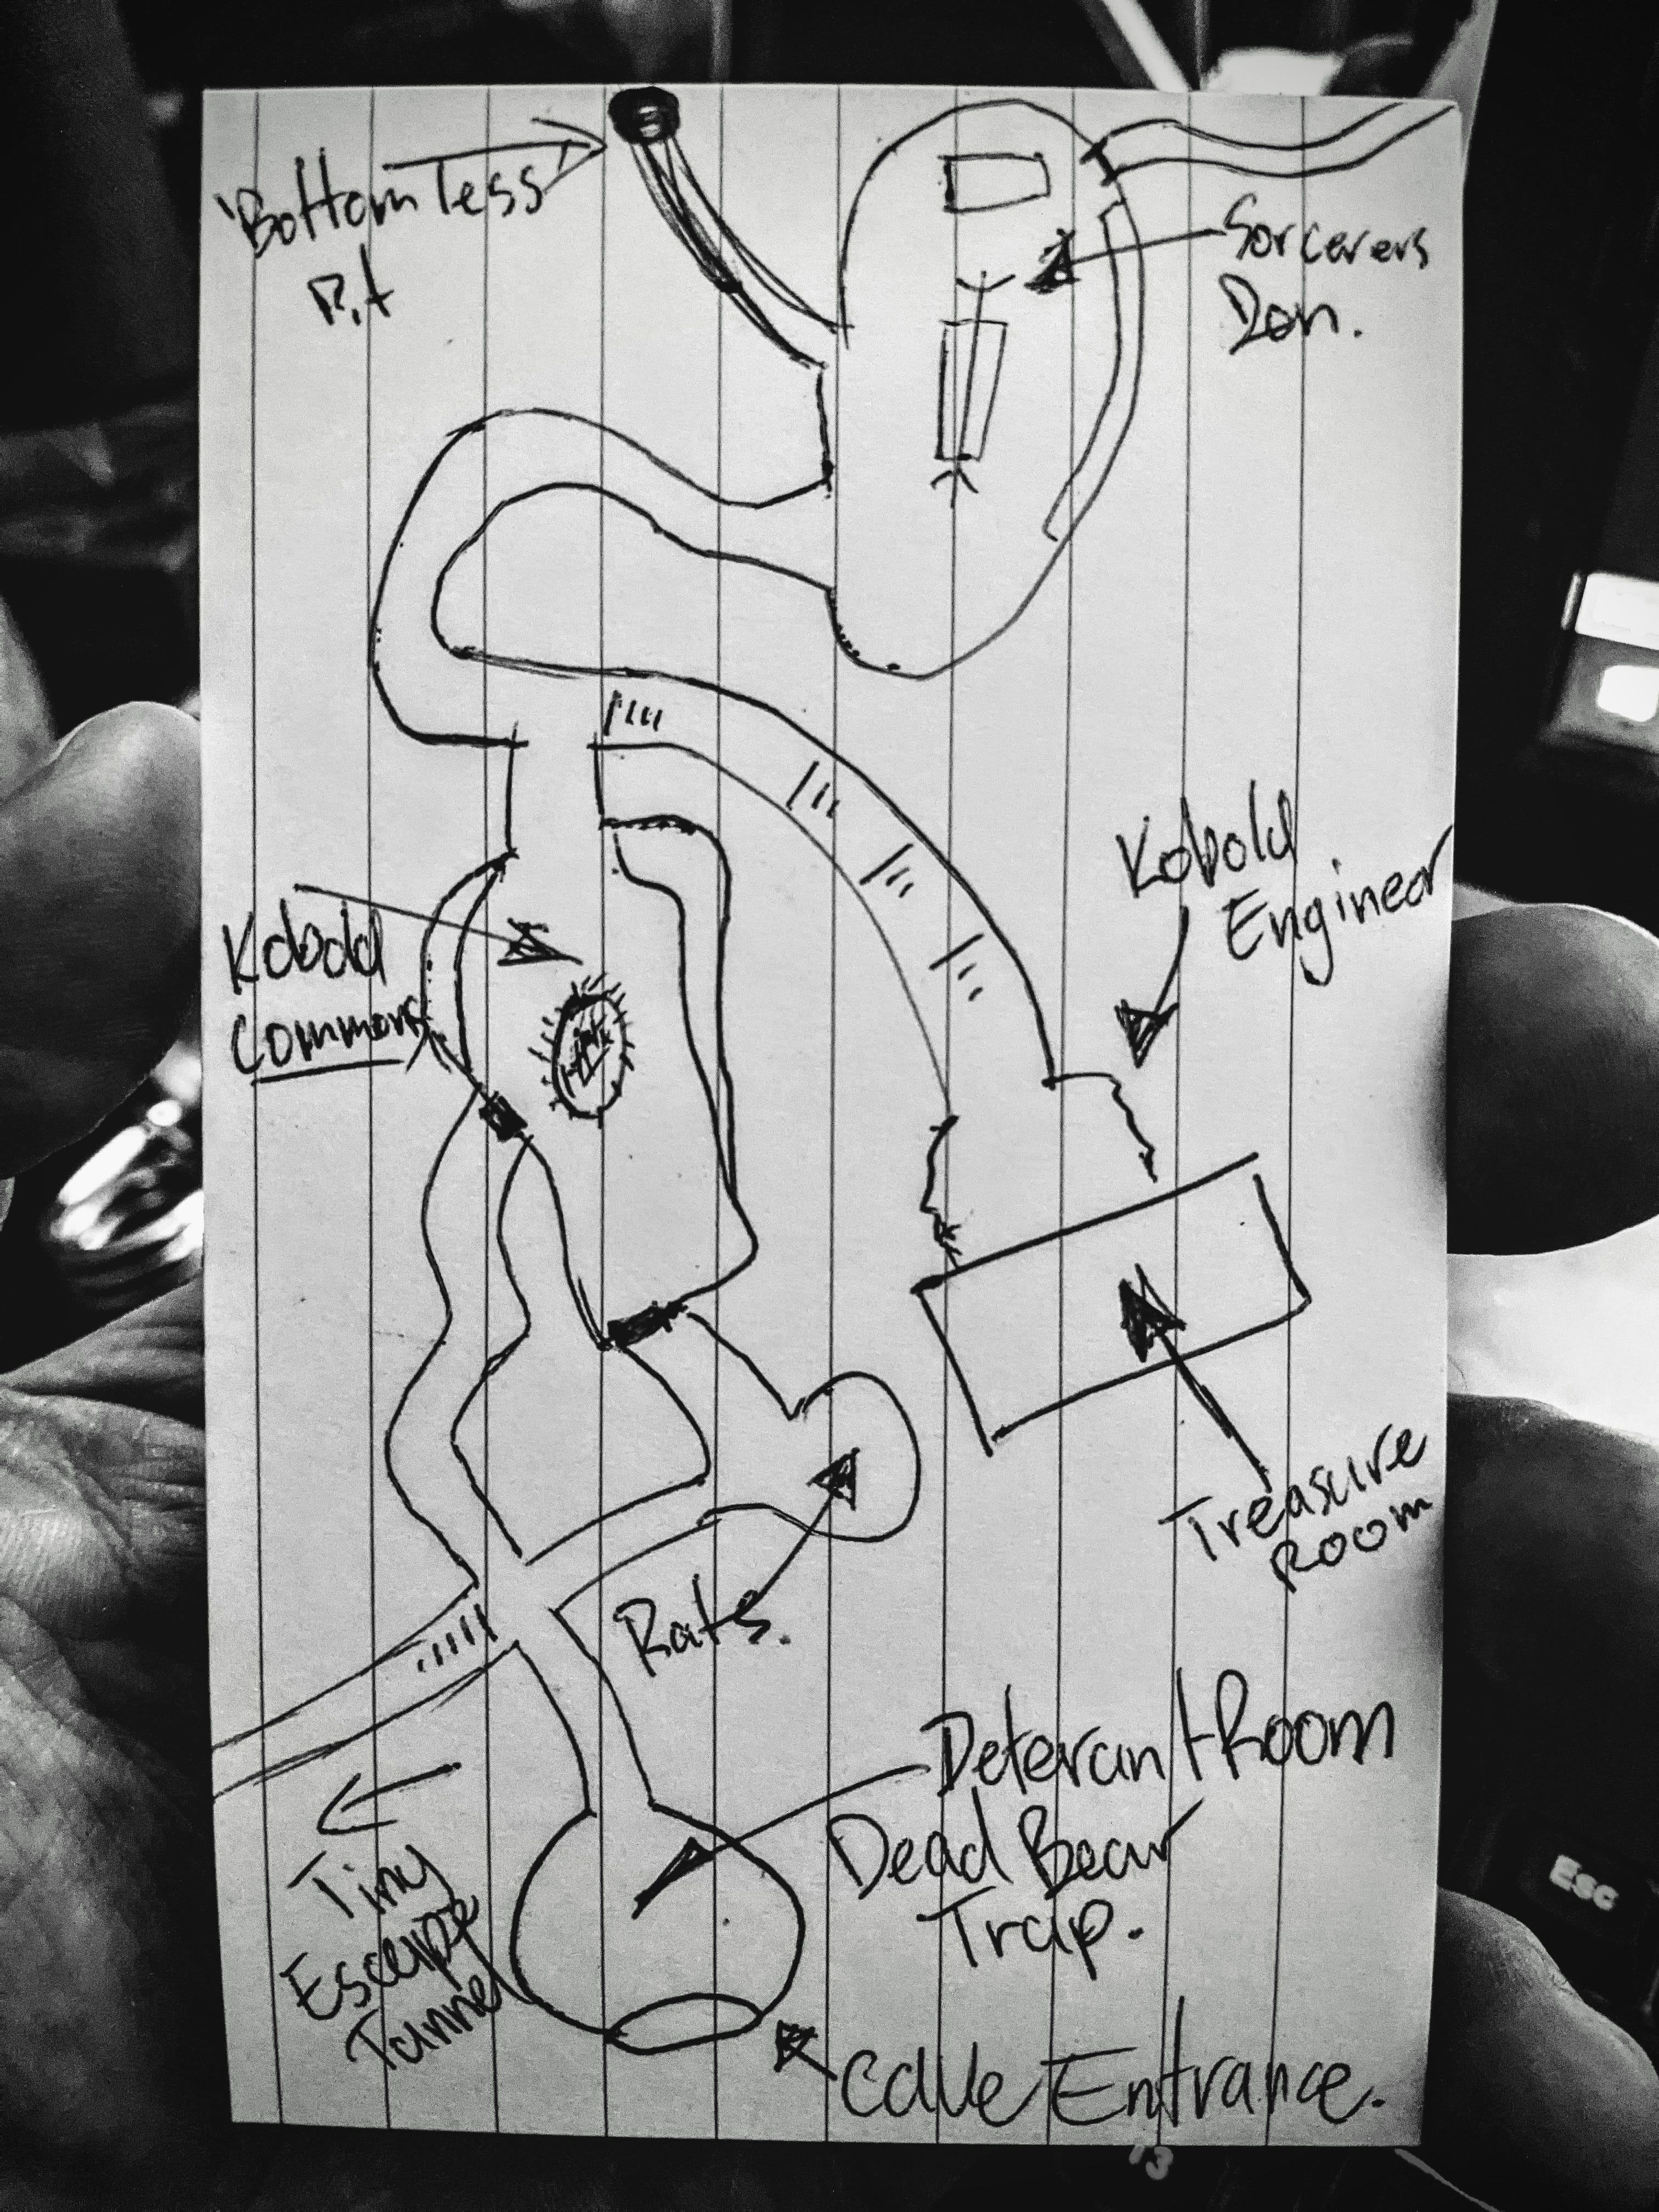 'Bottomless
Pit
Sorcerers
Den.
Kobold
Engineer
Kobold
Commons
Treasure
Room
Rats.
Deterant Room
Dead Bear
Trap.
Tiny
Escape
Tunnel
Cave Entrance.
Esc